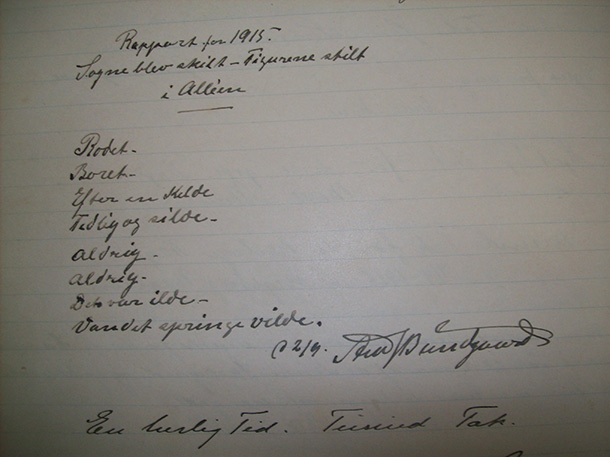 Rapport for 1915.
Sogne blev skilt - Figurene stilt
i Alléen
Rodet -
Boret -
Efter en Kilde
Tidlig og silde -
Aldrig -
Aldrig -
Det var ilde -
Vandet springe vilde.
2/9. And Bundgaard
En herlig Tid. Tusind Tak.